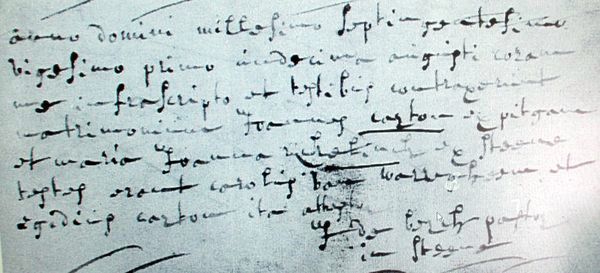 anno domini millesimo septingentesimo
vigesimo primo undecima augusti coram
me infrascripto et testibis contraxerunt
matrimonium Joannes carton ex pitgam
et maria Joanna ex steene
testes erant carolis van warrhem et
egidius carton ita attestor
de berch pastor
in steene